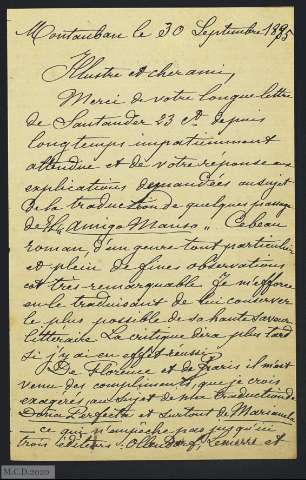 Montauban le 30 Septembre 1895
Illustre et cher ami,
Merci de votre longue lettre
de Santander 23 ct depuis
longtemps impatiemment
attendue et de votre réponse aux
explications demandées au sujet
de la traduction de quelques passages
de "El Amigo Manso". Ce beau
roman, d'un genre tout particulier
et plein de fines observations
est très remarquable. Je m'efforce
en le traduisant de lui conserver
le plus possible de sa haute saveur
littéraire. La critique dira plus tard
si j'y ai en effet reussi.
De Florence et de Paris il m'est
venu des compliments, que je crois
exagérés au sujet de ma traduction de
Doña Perfecta et surtout de Marianela
— ce qui n'empêche pas jusqu'ici
trois éditeurs, Ollendorff, Lemerre et
M.C.D.2029